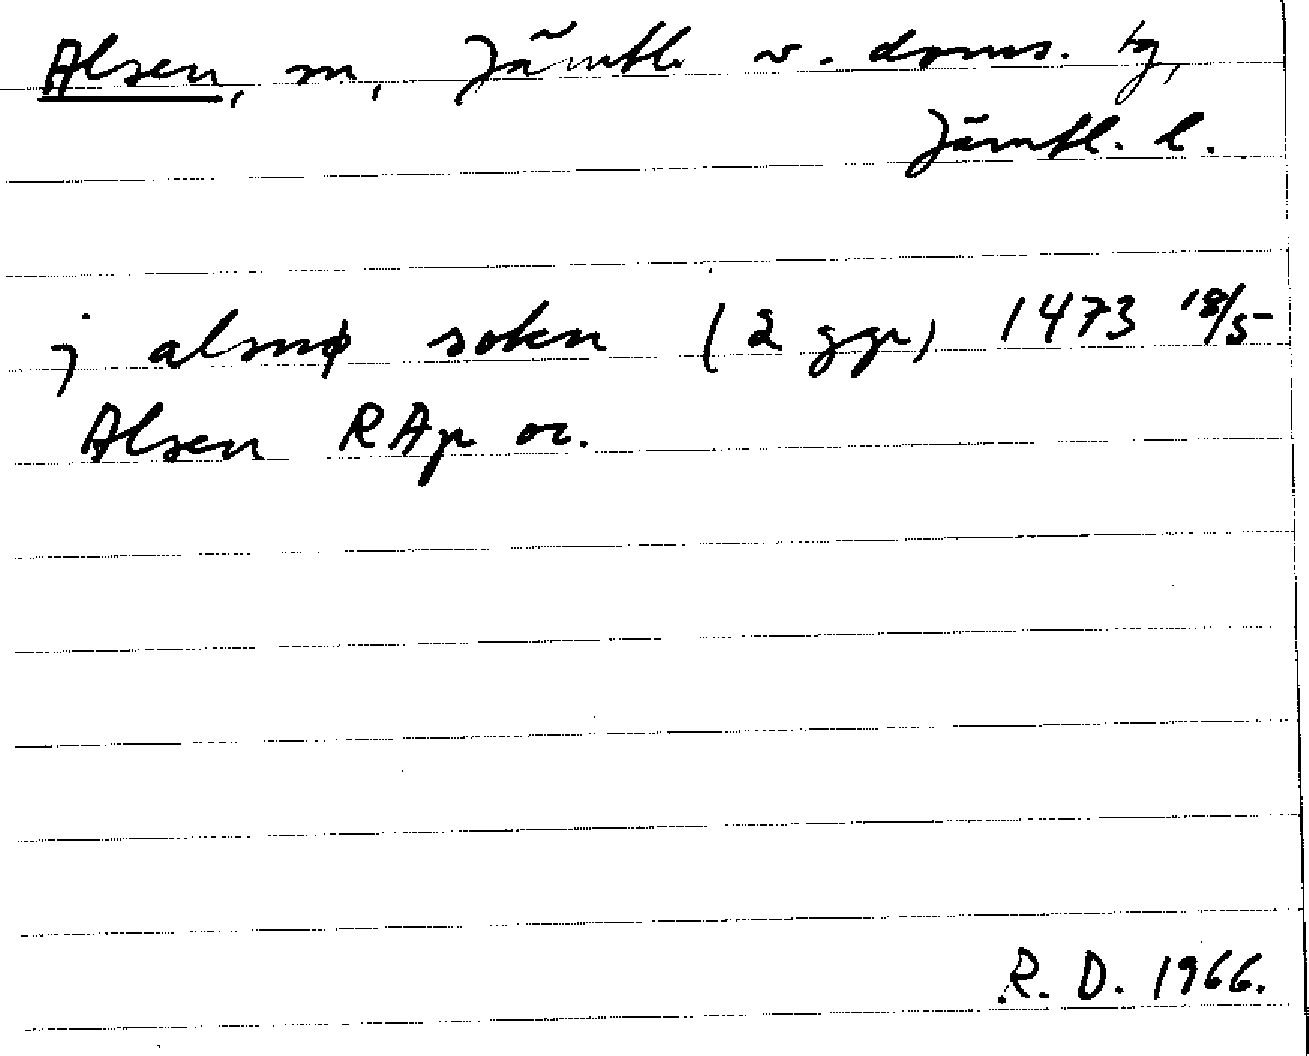 Alsen, sn, Jämtl. v. doms. tg,
Jämtl. l.
j alsnø sokn (2 ggr) 1473 18/5
Alsen RAp or.
R. D. 1966.